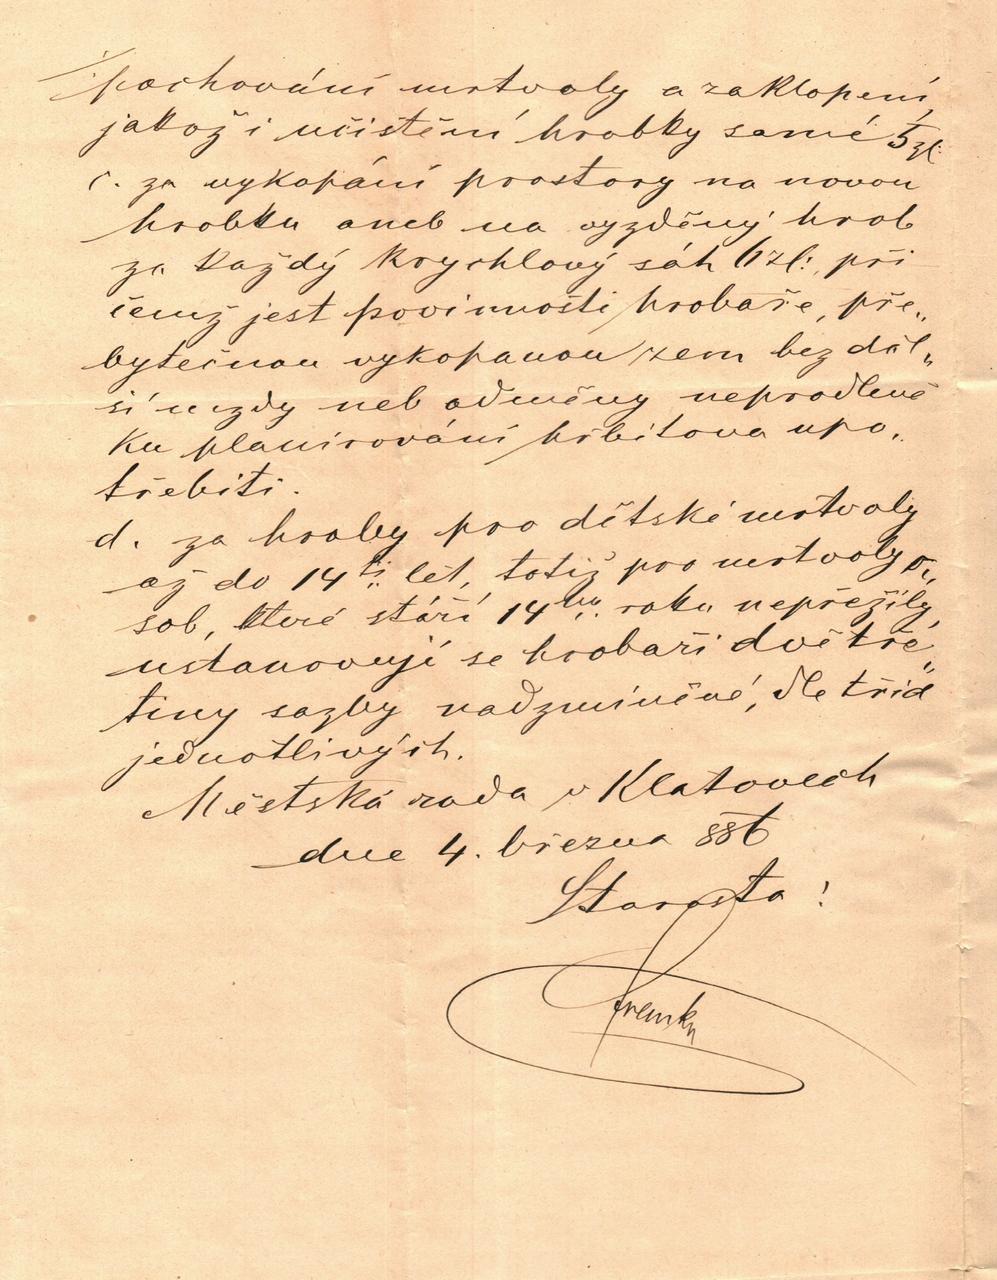 pochování mrtvoly a zaklopení,
jakož i učistění hrobky samé 5 zl.
c. za vykopání prostory na novou
hrobku aneb na vyzděný hrob
za každý krychlový sáh 6 zl:, při
čemž jest povinností hrobaře, pře„
bytečnou vykopanou zem bez dal„
ší mzdy neb odměny neprodleně
ku planírování hřbitova upo„
třebiti.
d. za hroby pro dětské mrtvoly
až do 14ti let, totiž pro mrtvoly o„
sob, které stáří 14ho roku nepřežily,
ustanovují se hrobaři dvě tře„
tiny sazby nadzmíněné, dle tříd
jednotlivých.
Městská rada v Klatovech
dne 4. března 886
Starosta!